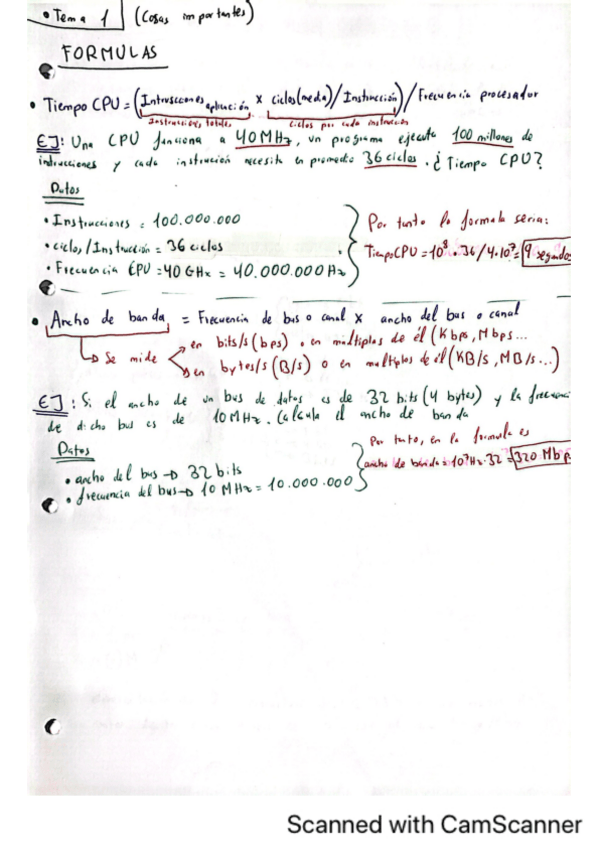 • Tema 1 (Cosas importantes)
FORMULAS
• Tiempo CPU = (Intrucciones aplicación x ciclos(media)/Instrucción)/Frecuencia procesador
Instrucciones totales Ciclos por cada instrucción
EJ: Una CPU funciona a 40MHz, un programa ejecuta 100 millones de
intrucciones y cada instrucción necesita en promedio 36 ciclos. ¿Tiempo CPU?
Datos
• Instrucciones = 100.000.000
• ciclos/Instrucción = 36 ciclos
• Frecuencia CPU = 40 GHz = 40.000.000 Hz
Por tanto la formula seria:
TiempoCPU = 10⁸ · 36/4·10⁷ = 9 segundos
• Ancho de banda = Frecuencia de bus o canal x ancho del bus o canal
Se mide
en bits/s (bps) o en múltiplos de él (Kbps, Mbps...
en bytes/s (B/s) o en multiplos de él (KB/s, MB/s...)
EJ: Si el ancho de un bus de datos es de 32 bits (4 bytes) y la frecuenci
de dicho bus es de 10MHz. Calcula el ancho de banda
Datos
• ancho del bus → 32 bits
• frecuencia del bus → 10 MHz = 10.000.000
Por tanto, en la formula es
ancho de banda = 10⁷Hz · 32 = 320 Mbps
Scanned with CamScanner